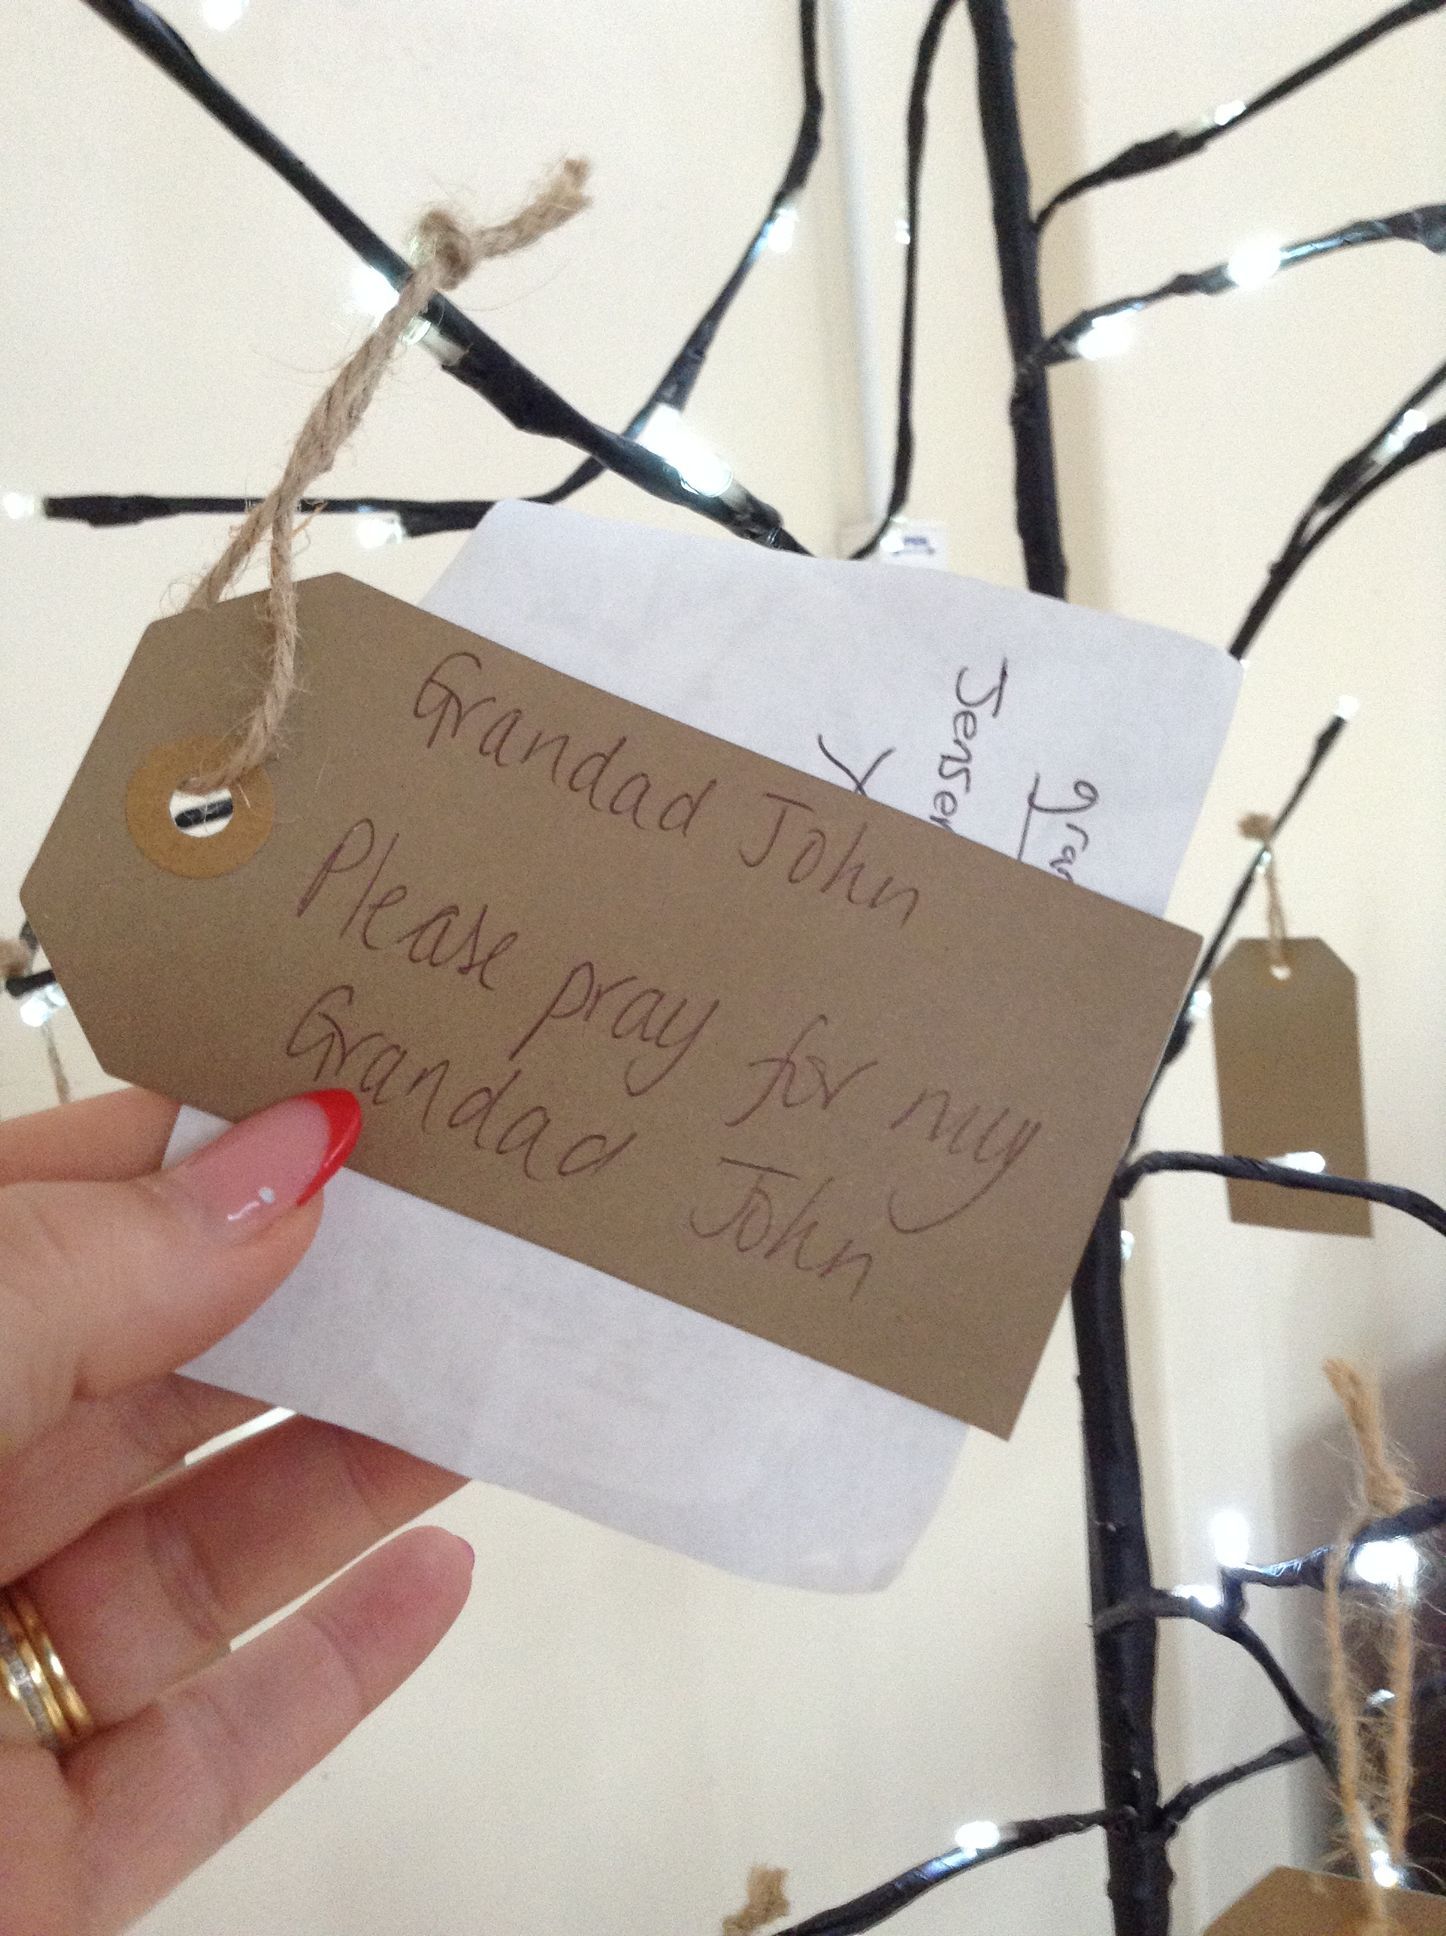 Grandad John
Please pray for my
Grandad John
x